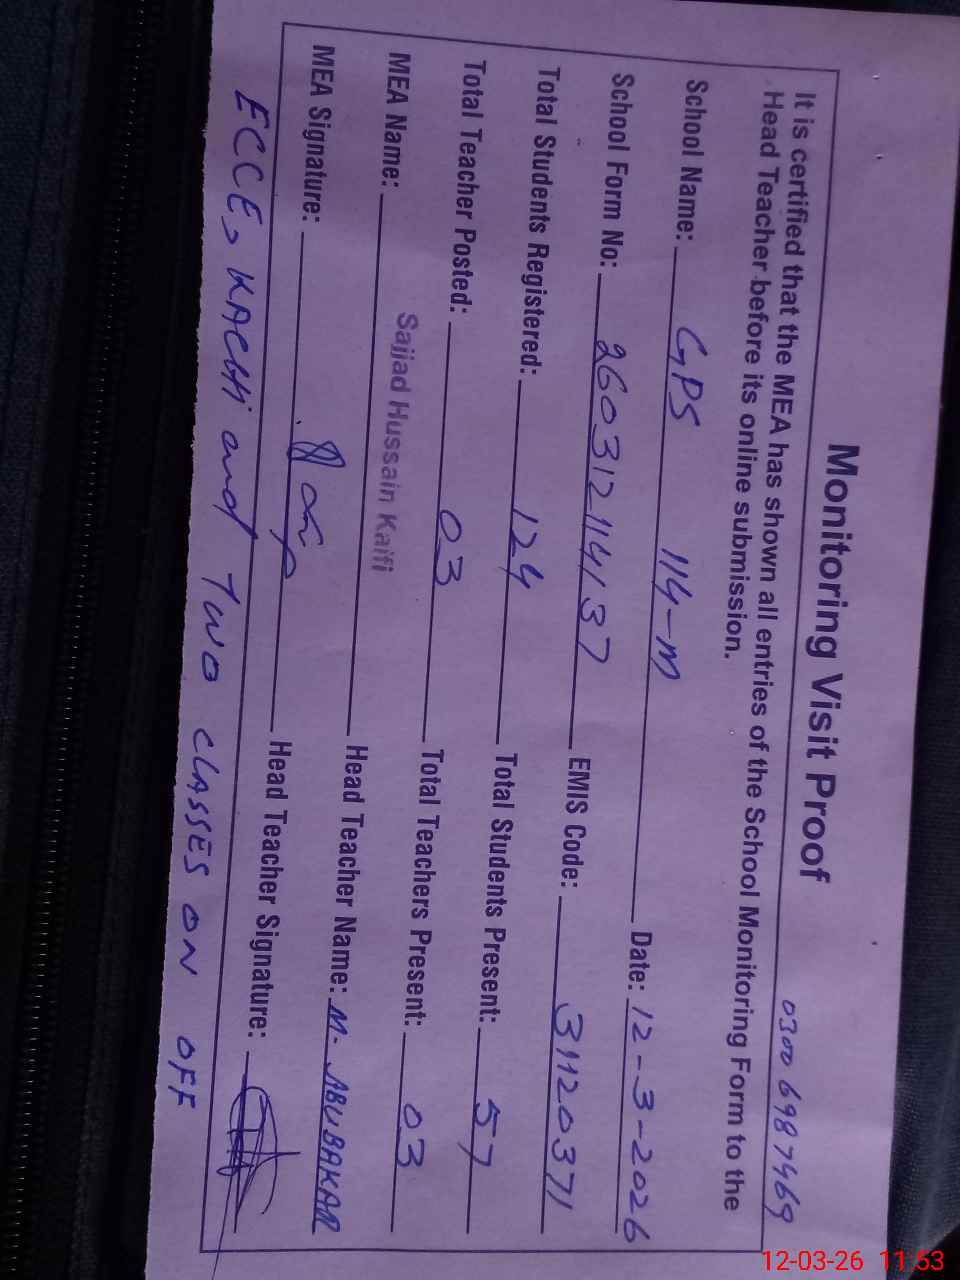 Monitoring Visit Proof
0300 6987469
It is certified that the MEA has shown all entries of the School Monitoring Form to the
Head Teacher before its online submission.
School Name: GPS 114-M Date: 12-3-2026
School Form No: 260312114137 EMIS Code: 31120371
Total Students Registered: 124 Total Students Present: 57
Total Teacher Posted: 03 Total Teachers Present: 03
MEA Name: Sajjad Hussain Kaifi Head Teacher Name: M. ABUBAKAR
MEA Signature: Head Teacher Signature:
ECCE, KACHI and TWO CLASSES ON OFF
12-03-26 11:53